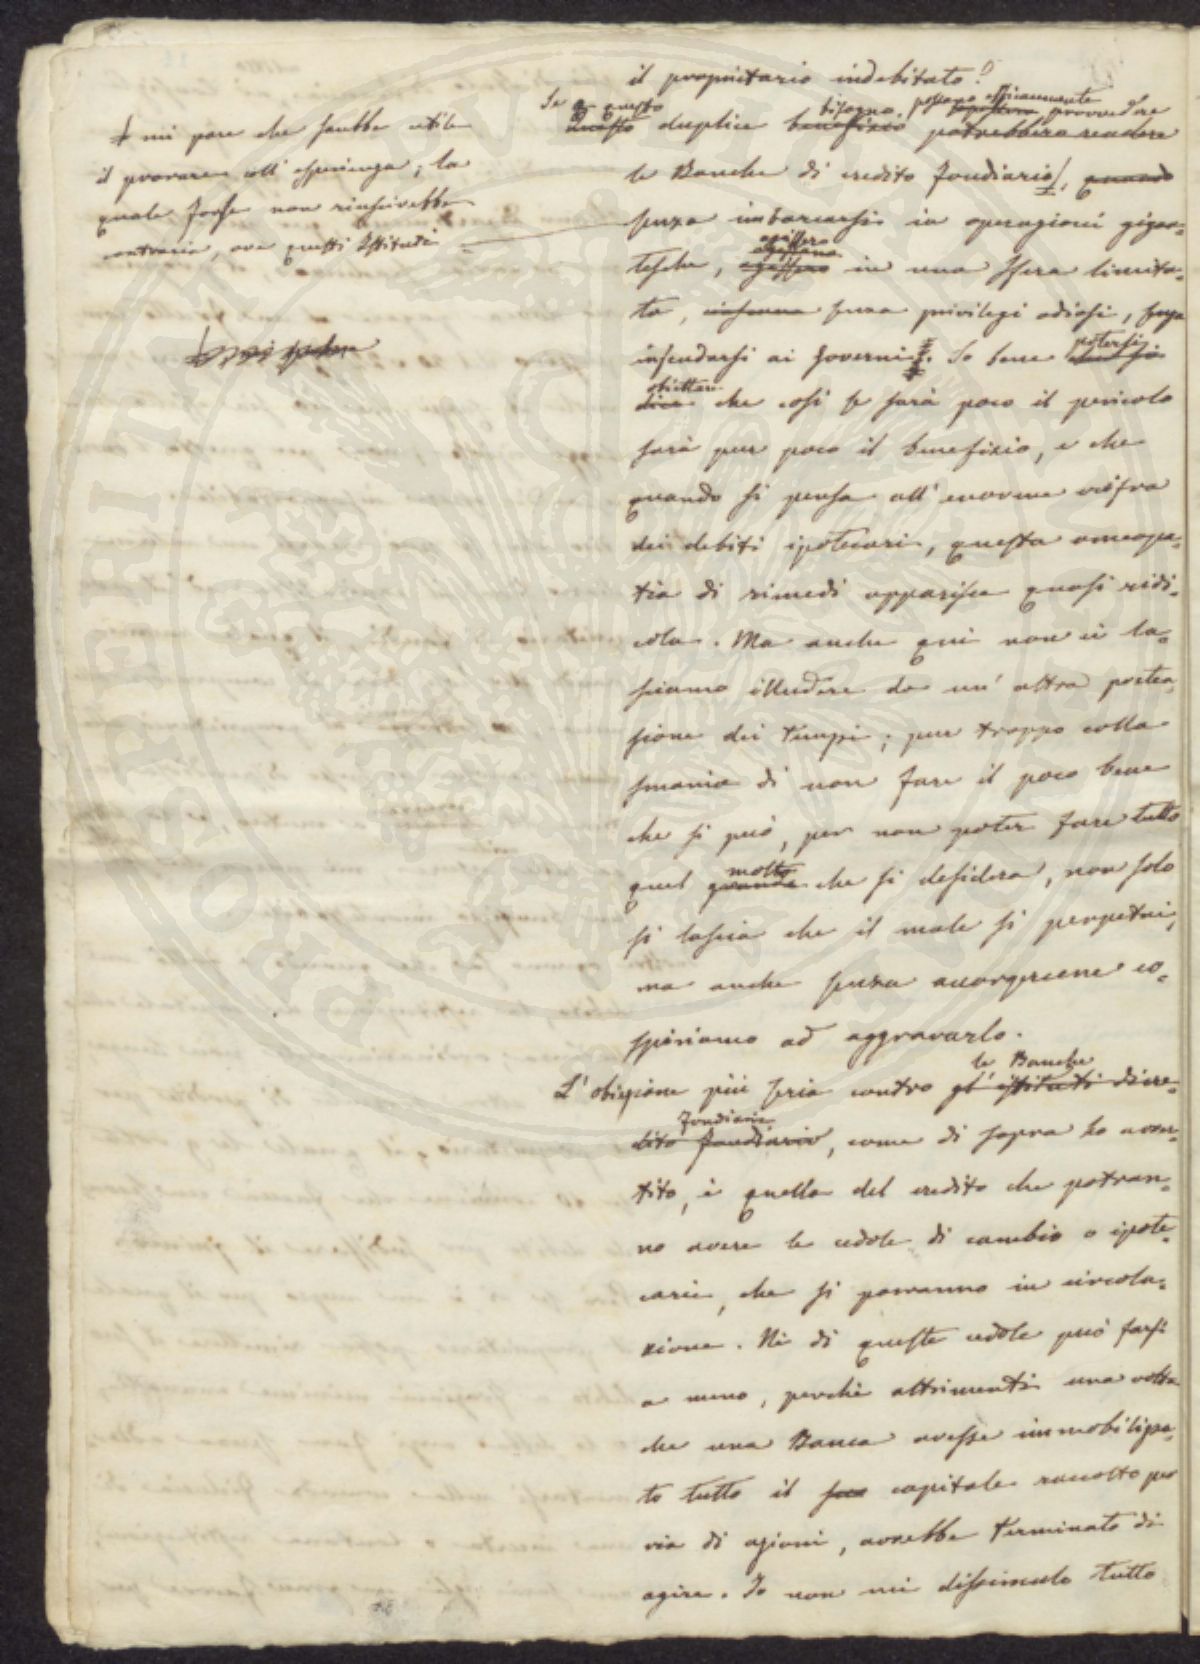 il proprietario indebitato?
Se a questo bisogno possano efficacemente provvedere
questo duplice benefizio potrebbero rendere
le Banche di credito fondiario, quando
senza imbarcarsi in operazioni gigan=
tesche, agissero in una sfera limita=
ta, senza privilegi odiosi, senza
infeudarsi ai Governi. So bene potersi
obiettare
dire che così se sarà poco il pericolo
sarà pur poco il benefizio, e che
quando si pensa all' enorme cifra
dei debiti ipotecari, questa omeopa=
tia di rimedi apparisce quasi ridi=
cola. Ma anche qui non ci la=
sciamo illudere da un' altra
dei tempi; pur troppo colla
smania di non fare il poco bene
che si può, per non poter fare tutto
quel molto che si desidera, non solo
si lascia che il male si perpetui,
ma anche senza accorgercene co=
spiriamo ad aggravarlo.
le Banche
L' obiezione più seria contro gl' istituti di cre=
fondiarie
dito fondiario, come di sopra ho avver=
tito, è quella del credito che potran=
no avere le cedole di cambio o ipote=
carie, che si porranno in circola=
zione. Nè di queste cedole può farsi
a meno, perchè altrimenti una volta
che una Banca avesse immobilizza=
to tutto il suo capitale raccolto per
via di azioni, avrebbe terminato di
agire. Io non mi dissimulo tutto
+ mi pare che sarebbe utile
il provare coll' esperienza; la
quale forse non riuscirebbe
contraria, ove questi Istituti